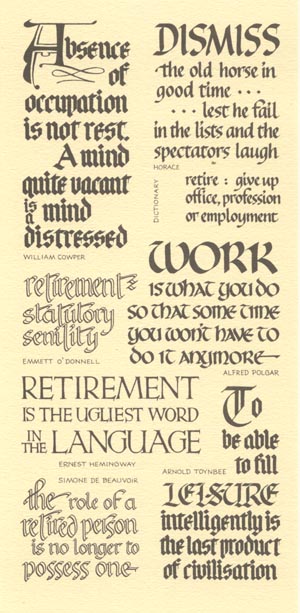 Absence
of
occupation
is not rest.
A mind
quite vacant
is a mind
distressed
WILLIAM COWPER
DISMISS
the old horse in
good time ...
... lest he fail
in the lists and the
spectators laugh
HORACE
DICTIONARY
retire : give up
office, profession
or employment
WORK
IS WHAT YOU DO
SO THAT SOME TIME
YOU WON'T HAVE TO
DO IT ANYMORE
ALFRED POLGAR
retirement:
statutory
senility
EMMETT O'DONNELL
RETIREMENT
IS THE UGLIEST WORD
IN THE LANGUAGE
ERNEST HEMINGWAY
SIMONE DE BEAUVOIR
the role of a
retired person
is no longer to
possess one
To
be able
to fill
ARNOLD TOYNBEE
LEISURE
intelligently is
the last product
of civilisation